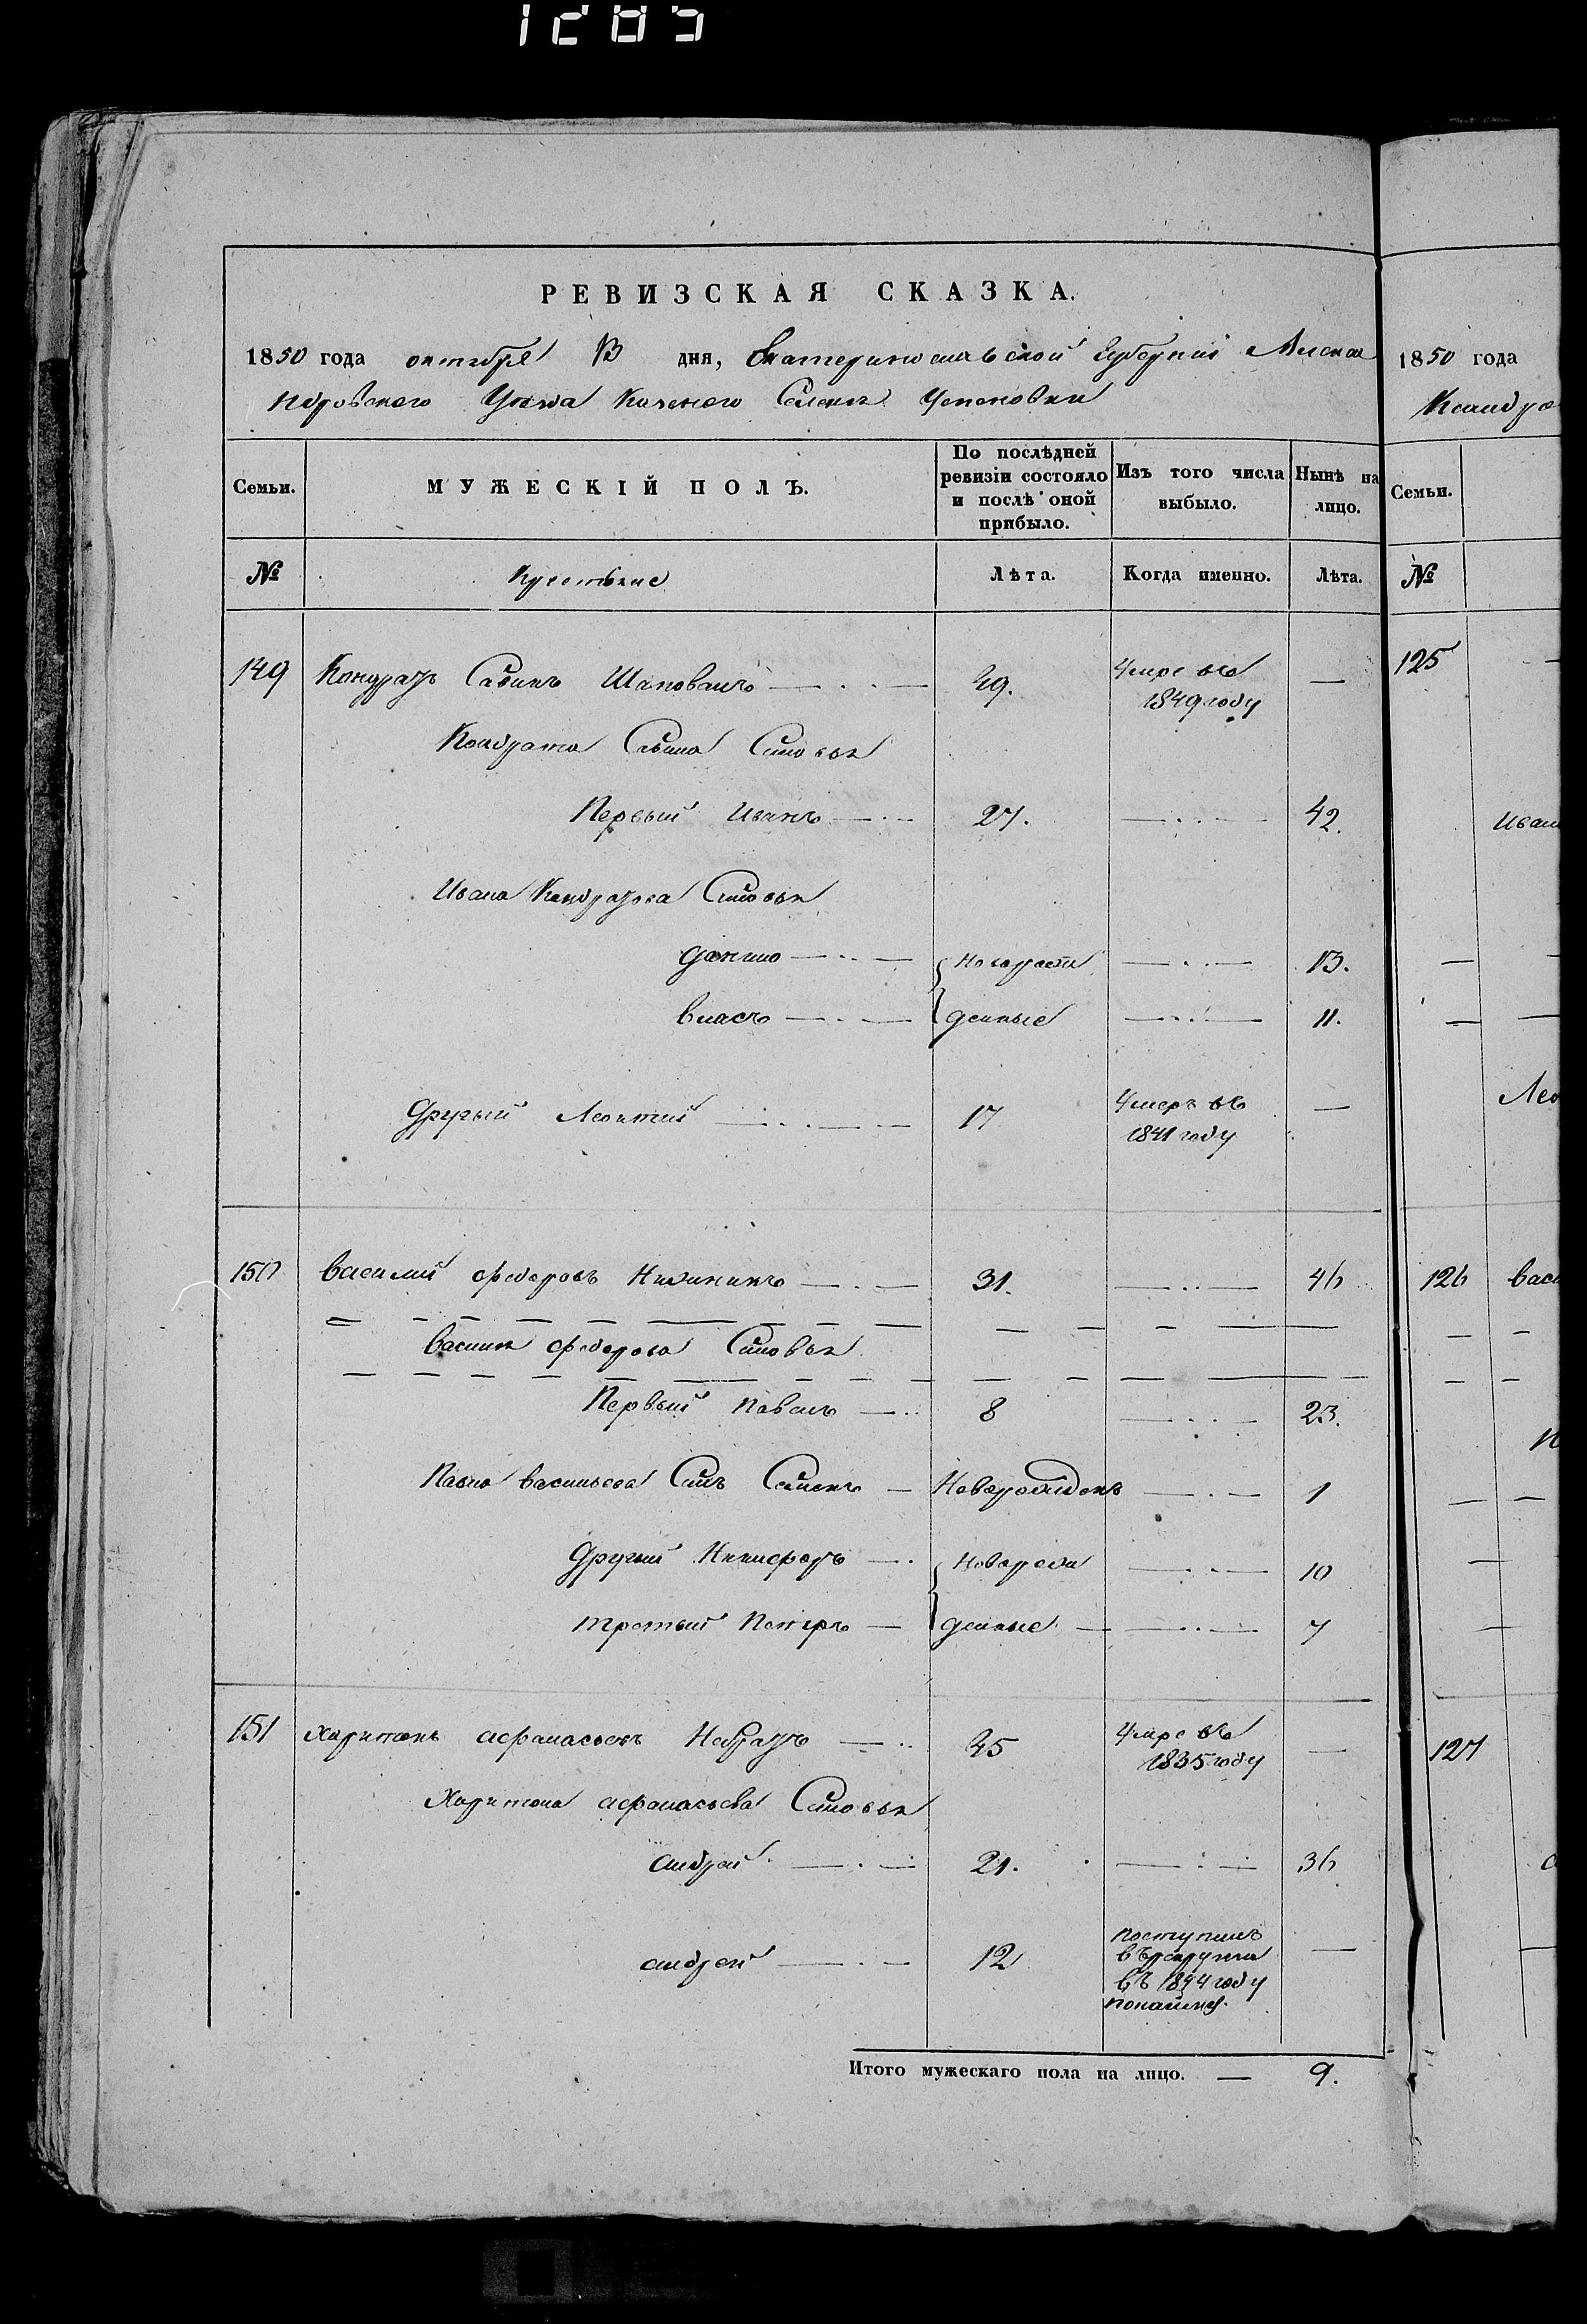 1285
РЕВИЗСКАЯ СКАЗКА.
1850 года октября 13 дня, Екатеринославской Губернии Алекса
ндровского Уезда Казеного Селенія Успеновки
Семьи. МУЖЕСКІЙ ПОЛЪ. По послѣдней ревизіи состояло и послѣ оной прибыло. Изъ того числа выбыло. Нынѣ на лицо.
№ Крестьяне Лѣта. Когда именно. Лѣта.
149 Кондратъ Савинъ Шаповалъ 49. Умре въ 1849 году —
Кондрата Савина Сыновья
Первый Иванъ 27. — 42.
Ивана Кондратова Сыновья
Данило новорож — 13.
Власъ денные — 11.
Другий Леонтий 17 Умеръ въ 1841 году —
150 Василий Федоровъ 31. — 46
Василия Федорова Сыновья
Первый Павелъ 8 — 23.
Павла Васильева Сынъ Семенъ — Новорожденъ — 1
Другий Никифоръ новорож — 10
третий Петръ — денные — 7
151 Харитонъ Афанасьевъ 45 Умре въ 1835 году —
Харитона Афанасьева Сыновья
Андрей 21. — 36
Андрей 12 поступилъ въ рекруты въ 1844 году —
Итого мужескаго пола на лицо. — 9.
1850 года
Ксандро
Семьи.
№
125
Иван
Лео
126 Васи
127